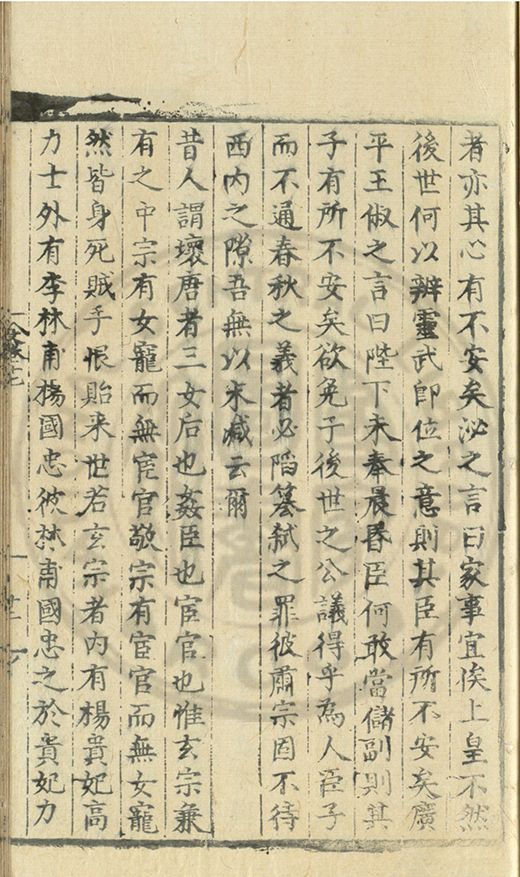 者亦其心有不安矣泌之言曰家事宜俟上皇不然
後世何以辨靈武即位之意則其臣有所不安矣廣
平王俶之言曰陛下未奉晨昏臣何敢當儲副則其
子有所不安矣欲免子後世之公議得乎為人臣子
而不通春秋之義者必陷篡弑之罪彼肅宗固不待
西內之隙吾無以末減云爾
昔人謂壞唐者三女后也姦臣也宦官也惟玄宗兼
有之中宗有女寵而無宦官敬宗有宦官而無女寵
然皆身死賊手恨貽来世若玄宗者內有楊貴妃高
力士外有李林甫楊國忠彼林甫國忠之於貴妃力